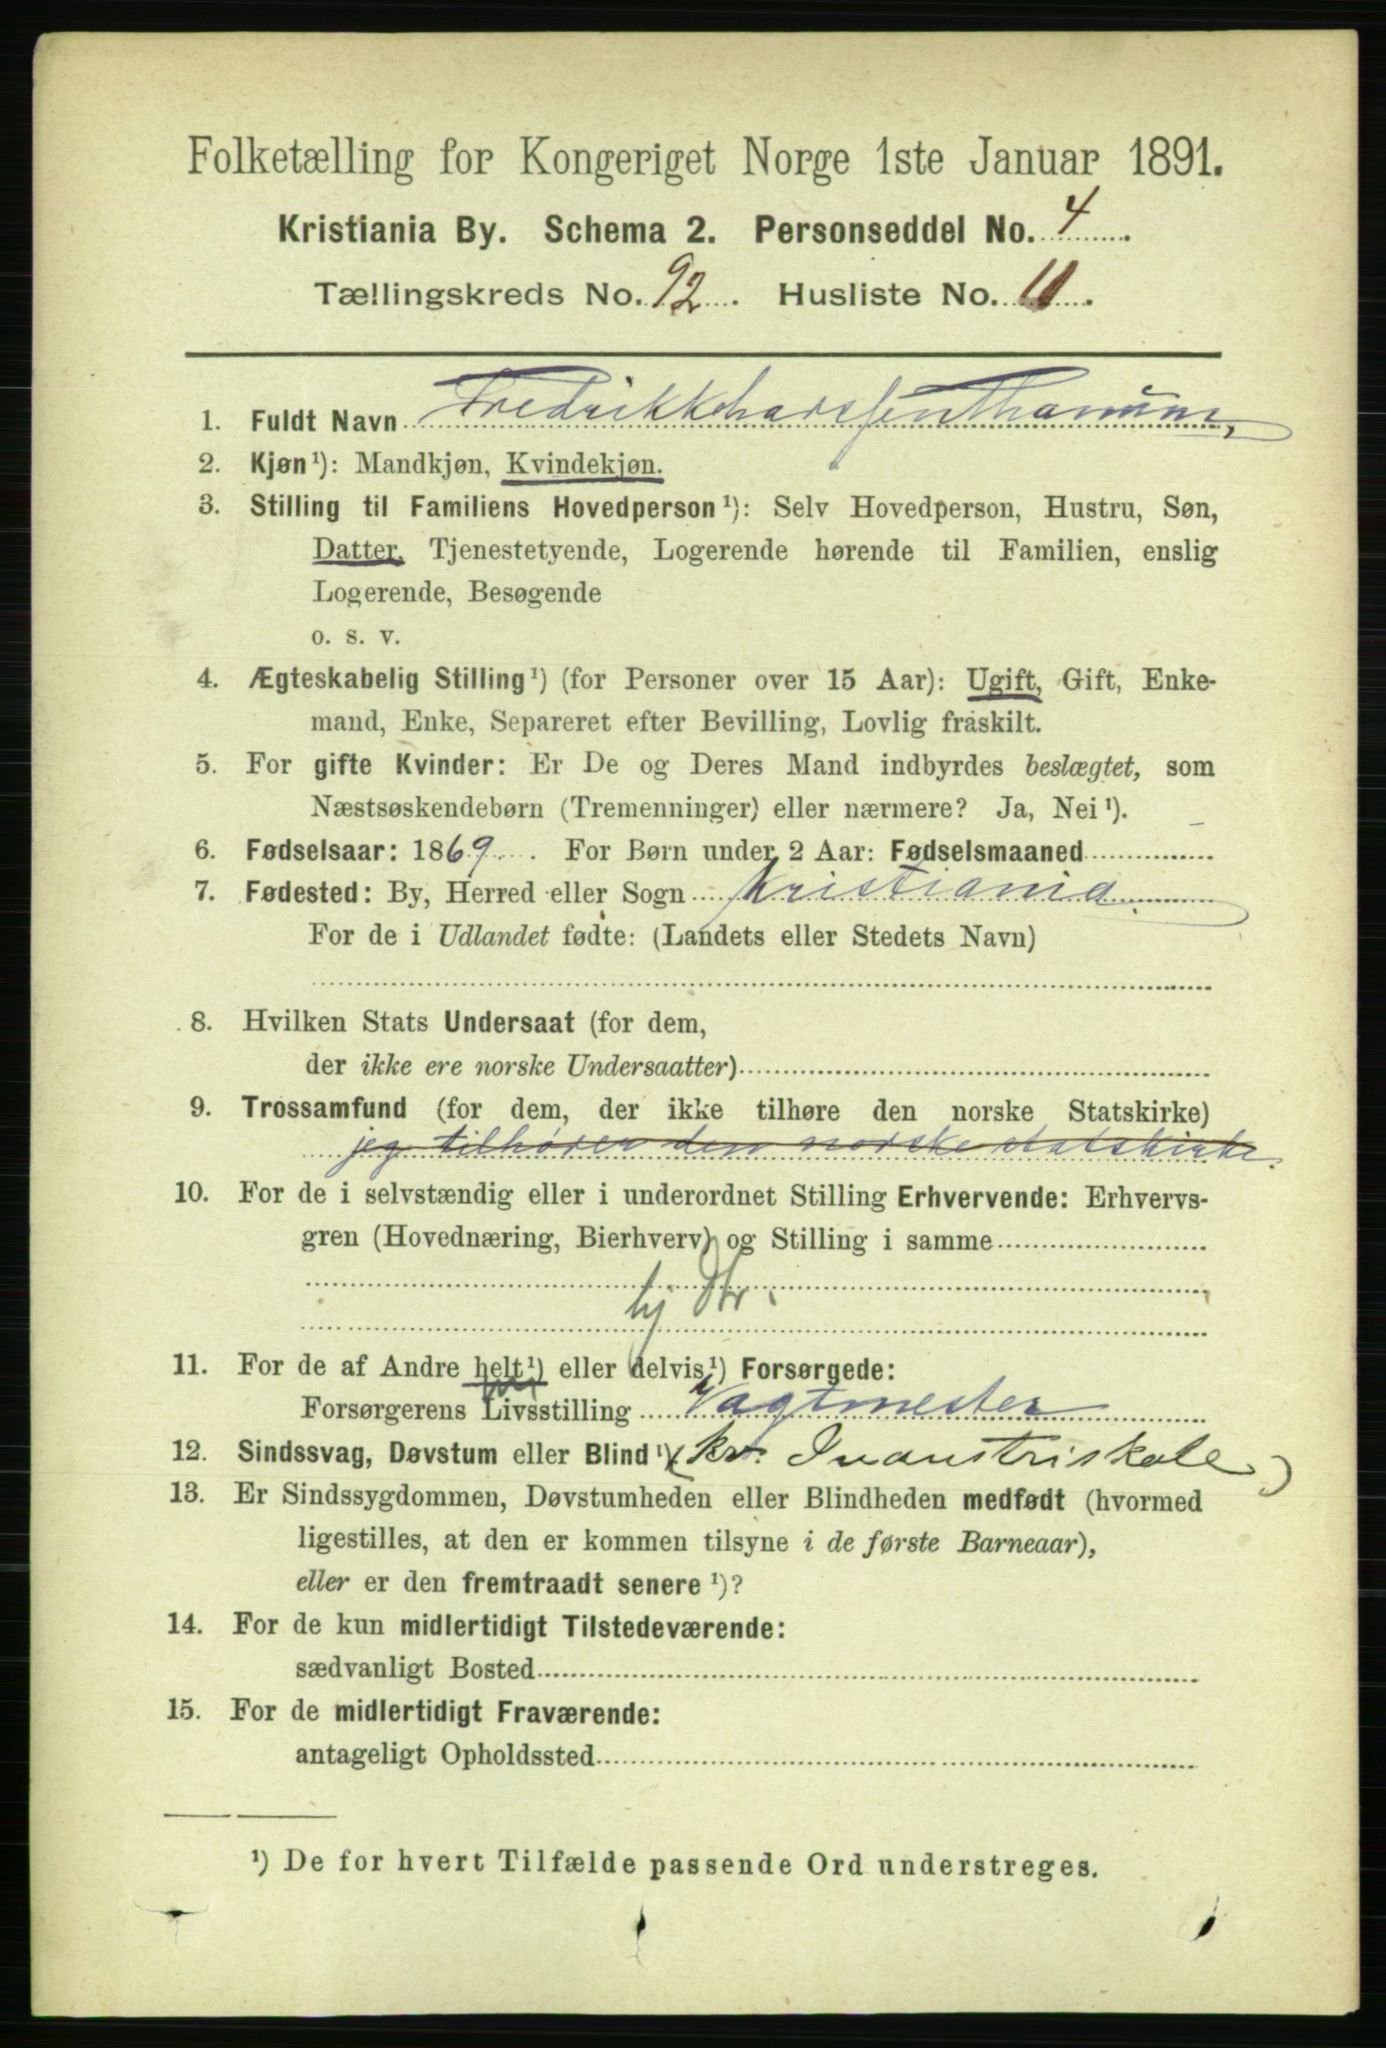 Folketælling for Kongeriget Norge 1ste Januar 1891.
Kristiania By. Schema 2. Personseddel No. 4.
Tællingskreds No. 92. Husliste No. 11.
1. Fuldt Navn Fredrikke
2. Kjøn¹): Mandkjøn, Kvindekjøn.
3. Stilling til Familiens Hovedperson¹): Selv Hovedperson, Hustru, Søn,
Datter, Tjenestetyende, Logerende hørende til Familien, enslig
Logerende, Besøgende
o. s. v.
4. Ægteskabelig Stilling¹) (for Personer over 15 Aar): Ugift, Gift, Enke-
mand, Enke, Separeret efter Bevilling, Lovlig fraskilt.
5. For gifte Kvinder: Er De og Deres Mand indbyrdes beslægtet, som
Næstsøskendebørn (Tremenninger) eller nærmere? Ja, Nei¹).
6. Fødselsaar: 1869. For Børn under 2 Aar: Fødselsmaaned
7. Fødested: By, Herred eller Sogn Kristiania
For de i Udlandet fødte: (Landets eller Stedets Navn)
8. Hvilken Stats Undersaat (for dem,
der ikke ere norske Undersaatter)
9. Trossamfund (for dem, der ikke tilhøre den norske Statskirke)
jeg tilhører den norske statskirke.
10. For de i selvstændig eller i underordnet Stilling Erhvervende: Erhvervs-
gren (Hovednæring, Bierhverv) og Stilling i samme
hj Dtr.
11. For de af Andre helt¹) eller delvis¹) Forsørgede:
Forsørgerens Livsstilling Vagtmester
12. Sindssvag, Døvstum eller Blind¹) (kv. Industriskole)
13. Er Sindssygdommen, Døvstumheden eller Blindheden medfødt (hvormed
ligestilles, at den er kommen tilsyne i de første Barneaar),
eller er den fremtraadt senere¹)?
14. For de kun midlertidigt Tilstedeværende:
sædvanligt Bosted
15. For de midlertidigt Fraværende:
antageligt Opholdssted
¹) De for hvert Tilfælde passende Ord understreges.